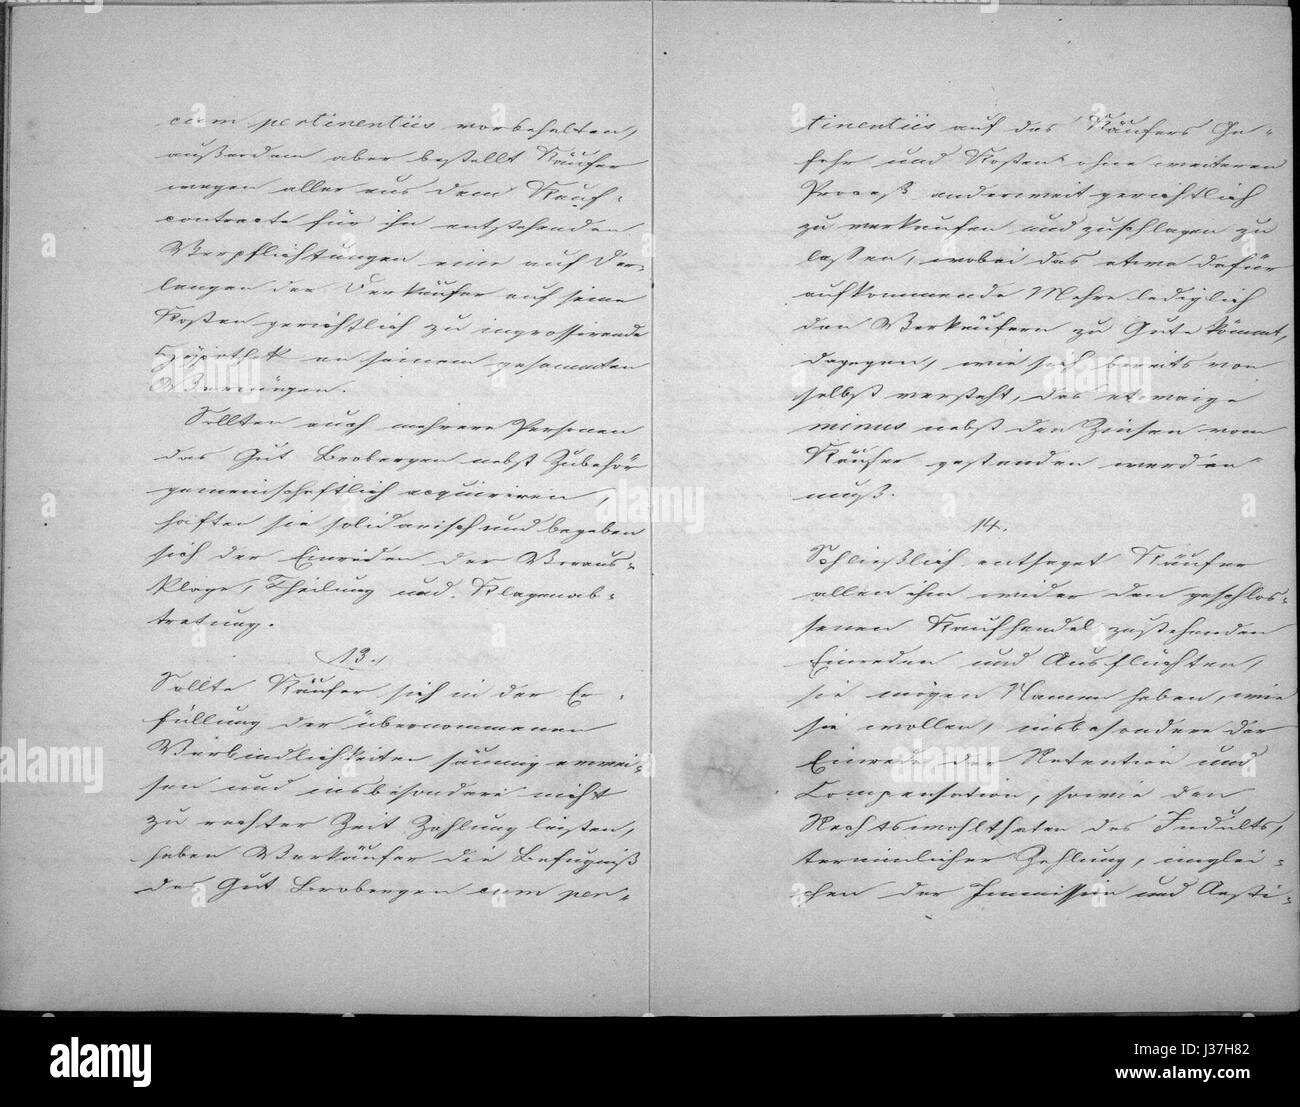 cum pertinentiis vorbehalten,
außerdem aber bestellt Käufer
wegen aller aus dem Kauf-
contracte für ihn entstehenden
Verpflichtungen eine auf Ver-
langen der Verkäufer auf seine
Kosten gerichtlich zu ingrossirende
Hypothek an seinem gesammten
Vermögen.
Sollten auch mehrere Personen
das Gut Brobergen nebst Zubehör
gemeinschaftlich acquiriren,
haften sie solidarisch und begeben
sich der Einreden der Voraus-
klage, Theilung und Klagenab-
tretung.
13.
Sollte Käufer sich in der Er-
füllung der übernommenen
Verbindlichkeiten säumig erwei-
sen und insbesondere nicht
zu rechter Zeit Zahlung leisten,
haben Verkäufer die Befugniß
das Gut Brobergen cum per-
tinentiis auf des Käufers Ge-
fahr und Kosten ohne weiteren
Proceß anderweit gerichtlich
zu verkaufen und zuschlagen zu
lassen, wobei das etwa dafür
aufkommende Mehre lediglich
den Verkäufern zu Gute kömmt,
dagegen, wie sich bereits von
selbst versteht, das etwaige
minus nebst den Zinsen vom
Käufer gestanden werden
muß.
14.
Schließlich entsaget Käufer
allen ihm wider den geschlos-
senen Kaufhandel zustehenden
Einreden und Ausflüchten,
sie mögen Namen haben, wie
sie wollen, insbesondere der
Einrede der Retention und
Compensation, sowie den
Rechtswohlthaten des Indults,
terminlicher Zahlung, inglei-
chen der Immission und Aesti-
alamy
a
alamy stock photo
alamy
Image ID: J37H82
www.alamy.com